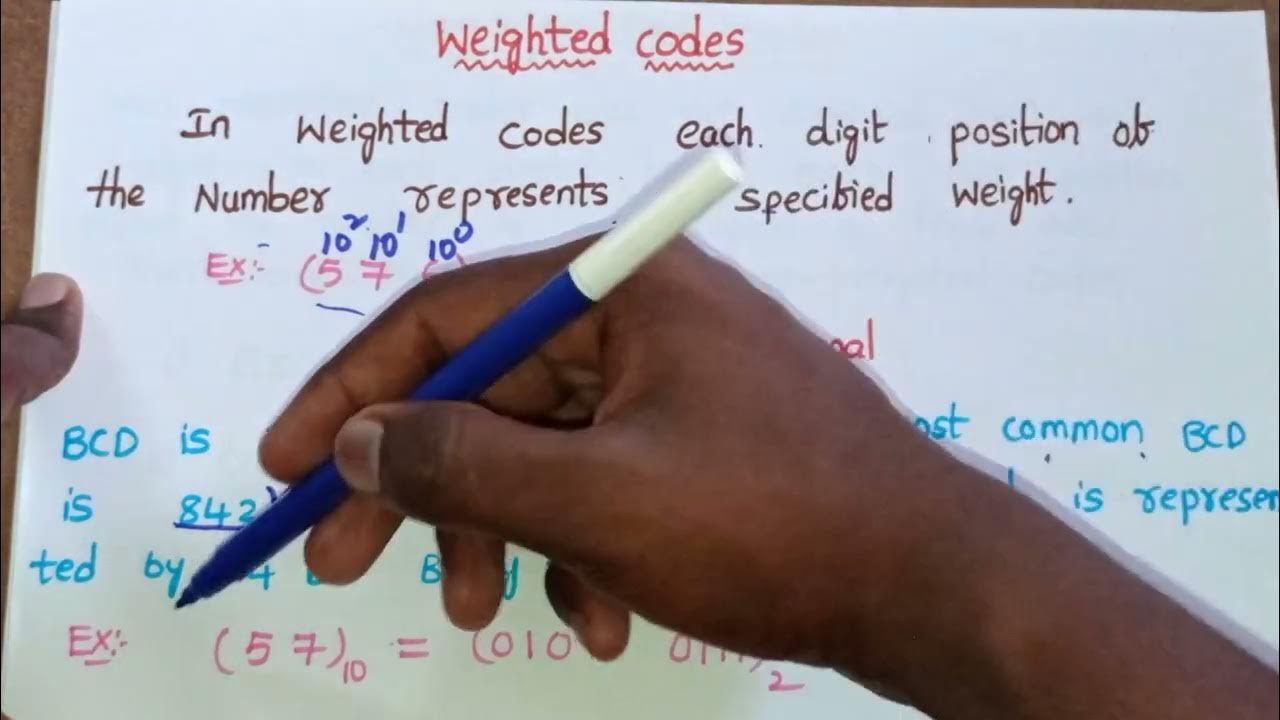 Weighted codes
In Weighted codes each digit position of
the Number represents specified weight.
10² 10¹ 10⁰
Ex:- (5 7
BCD is common BCD
is 842 is represen
ted by
Ex:- (57)₁₀ = (010 0111)₂